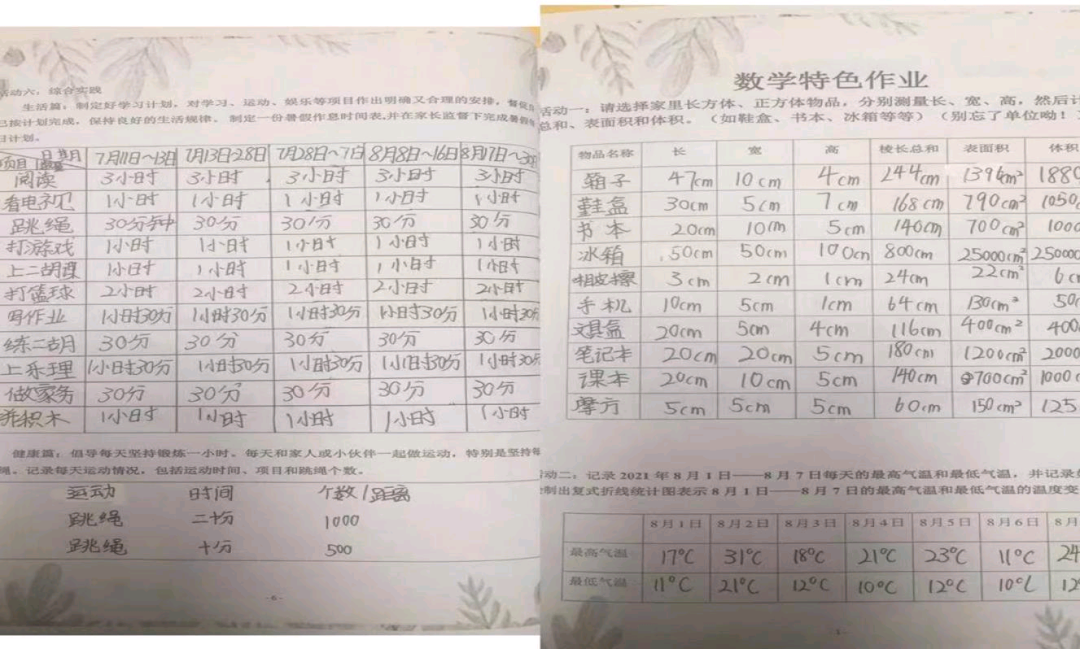 活动六，综合实践
生活篇：制定好学习计划，对学习、运动、娱乐等项目作出明确又合理的安排，督促自
己按计划完成，保持良好的生活规律。制定一份暑假作息时间表,并在家长监督下完成暑假每
日计划。
项目 日期 7月11日~13日 7月13日-28日 7月28日~7日 8月8日~16日 8月17日~
阅读 3小时 3小时 3小时 3小时 3小时
看电视 1小时 1小时 1小时 1小时 1小时
跳绳 30分钟 30分 30分 30分 30分
打游戏 1小时 1小时 1小时 1小时 1小时
上二胡课 1小时 1小时 1小时 1小时 1小时
打篮球 2小时 2小时 2小时 2小时 2小时
写作业 1小时30分 1小时30分 1小时30分 1小时30分 1小时30
练二胡 30分 30分 30分 30分 30分
上乐理 1小时30分 1小时30分 1小时30分 1小时30分 1小时30
做家务 30分 30分 30分 30分 30分
积木 1小时 1小时 1小时 1小时 1小时
健康篇：倡导每天坚持锻炼一小时。每天和家人或小伙伴一起做运动，特别是坚持每
绳。记录每天运动情况，包括运动时间、项目和跳绳个数。
运动 时间 个数/距离
跳绳 二十分 1000
跳绳 十分 500
-6-
数学特色作业
活动一：请选择家里长方体、正方体物品，分别测量长、宽、高，然后计
总和、表面积和体积。（如鞋盒、书本、冰箱等等）（别忘了单位呦！
物品名称 长 宽 高 棱长总和 表面积 体积
箱子 47cm 10cm 4cm 244cm 1396cm² 1880
鞋盒 30cm 5cm 7cm 168cm 790cm² 1050
书本 20cm 10cm 5cm 140cm 700cm² 1000
冰箱 50cm 50cm 100cm 800cm 25000cm² 250000
橡皮擦 3cm 2cm 1cm 24cm 22cm² 6c
手机 10cm 5cm 1cm 64cm 130cm² 50
文具盒 20cm 5cm 4cm 116cm 400cm² 400
笔记本 20cm 20cm 5cm 180cm 1200cm² 2000
课本 20cm 10cm 5cm 140cm 700cm² 1000
摩方 5cm 5cm 5cm 60cm 150cm² 125
动二：记录 2021 年 8 月 1 日——8 月 7 日每天的最高气温和最低气温，并记录
制出复式折线统计图表示 8 月 1 日——8 月 7 日的最高气温和最低气温的温度变
8月1日 8月2日 8月3日 8月4日 8月5日 8月6日 8月
最高气温 17℃ 31℃ 18℃ 21℃ 23℃ 11℃ 24
最低气温 11℃ 21℃ 12℃ 10℃ 12℃ 10℃ 12